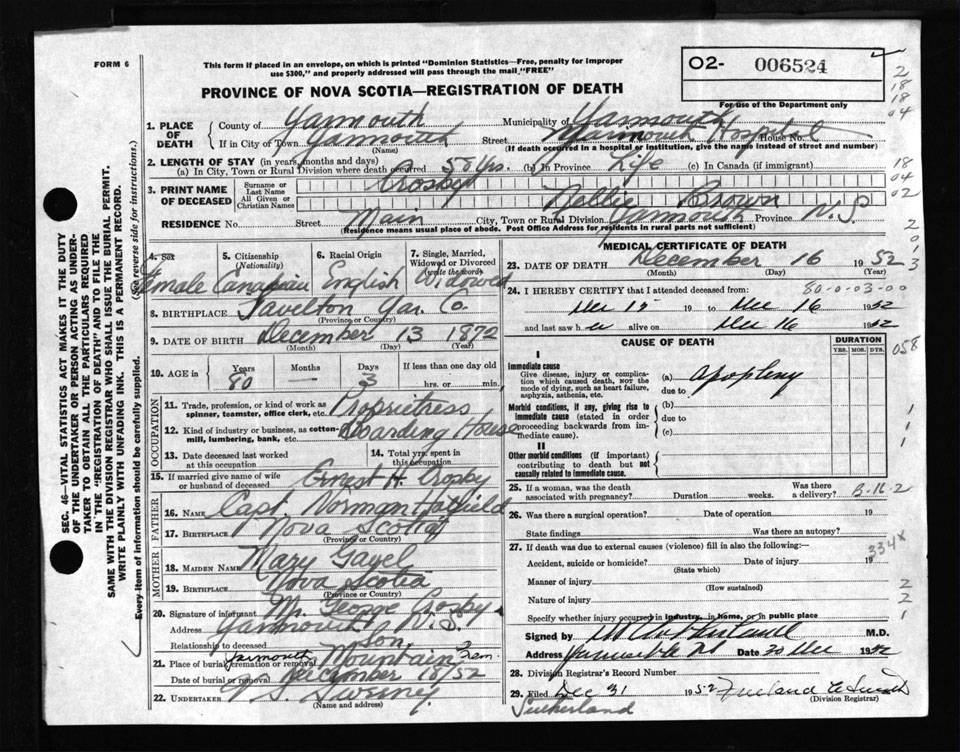 FORM 6
This form if placed in an envelope, on which is printed "Dominion Statistics—Free, penalty for improper
use $300," and properly addressed will pass through the mail "FREE"
O2- 006524
For use of the Department only
PROVINCE OF NOVA SCOTIA—REGISTRATION OF DEATH
1. PLACE OF DEATH
County of Yarmouth Municipality of Yarmouth
If in City of Town Yarmouth Street Yarmouth Hospital House No.
(Name) (If death occurred in a hospital or institution, give the name instead of street and number)
2. LENGTH OF STAY (in years, months and days)
(a) In City, Town or Rural Division where death occurred 58 Yrs. (b) In Province Life (c) In Canada (if immigrant)
3. PRINT NAME OF DECEASED
Surname or Last Name Crosby
All Given or Christian Names Nellie Brown
RESIDENCE No. Street Main City, Town or Rural Division Yarmouth Province N.S.
(Residence means usual place of abode. Post Office Address for residents in rural parts not sufficient)
4. Sex Female
5. Citizenship (Nationality) Canadian
6. Racial Origin English
7. Single, Married, Widowed or Divorced (write the word) Widowed
8. BIRTHPLACE Yar. Co.
(Province or Country)
9. DATE OF BIRTH December 13 1872
(Month) (Day) (Year)
10. AGE in Years 80 Months — Days 3 If less than one day old
hrs. or min.
OCCUPATION
11. Trade, profession, or kind of work as spinner, teamster, office clerk, etc. Proprietress
12. Kind of industry or business, as cotton-mill, lumbering, bank, etc. Boarding House
13. Date deceased last worked at this occupation
14. Total yrs. spent in this occupation
15. If married give name of wife or husband of deceased Ernest H. Crosby
FATHER
16. NAME Capt. Norman Hatfield
17. BIRTHPLACE Nova Scotia
(Province or Country)
MOTHER
18. MAIDEN NAME Mary Gayel
19. BIRTHPLACE Nova Scotia
(Province or Country)
20. Signature of informant Mr. George Crosby
Address Yarmouth N.S.
Relationship to deceased Son
21. Place of burial, cremation or removal Yarmouth Mountain Cem.
Date of burial or removal December 18/52
22. UNDERTAKER V. S. Sweeney
(Name and address)
MEDICAL CERTIFICATE OF DEATH
23. DATE OF DEATH December 16 1952
(Month) (Day) (Year)
24. I HEREBY CERTIFY that I attended deceased from: 80-0-03-00
Dec 15 19 to Dec 16 1952
and last saw h er alive on Dec 16 1952
CAUSE OF DEATH DURATION
YRS. MOS. DYS.
I
Immediate cause
Give disease, injury or complication which caused death, NOT the mode of dying, such as heart failure, asphyxia, asthenia, etc.
(a) Apoplexy
due to
Morbid conditions, if any, giving rise to immediate cause (stated in order proceeding backwards from immediate cause).
(b)
due to
(c)
II
Other morbid conditions (if important) contributing to death but not causally related to immediate cause.
25. If a woman, was the death associated with pregnancy? Duration weeks. Was there a delivery? B-16-2
26. Was there a surgical operation? Date of operation 19
State findings Was there an autopsy?
27. If death was due to external causes (violence) fill in also the following:— 334X
Accident, suicide or homicide? Date of injury 19
(State which)
Manner of injury
(How sustained)
Nature of injury
Specify whether injury occurred in industry, in home, or in public place
Signed by M.D.
Address Yarmouth NS Date 20 Dec 1952
28. Division Registrar's Record Number
29. Filed Dec 31 1952
(Division Registrar)
Sutherland
SEC. 46—VITAL STATISTICS ACT MAKES IT THE DUTY
OF THE UNDERTAKER OR PERSON ACTING AS UNDER-
TAKER TO OBTAIN ALL THE PARTICULARS REQUIRED
IN THE "REGISTRATION OF DEATH" AND TO FILE THE
SAME WITH THE DIVISION REGISTRAR WHO SHALL ISSUE THE BURIAL PERMIT.
WRITE PLAINLY WITH UNFADING INK. THIS IS A PERMANENT RECORD.
Every item of information should be carefully supplied. (See reverse side for instructions.)
2
18
18
04
18
04
02
2
0
2
3
058
1
1
2
2
1